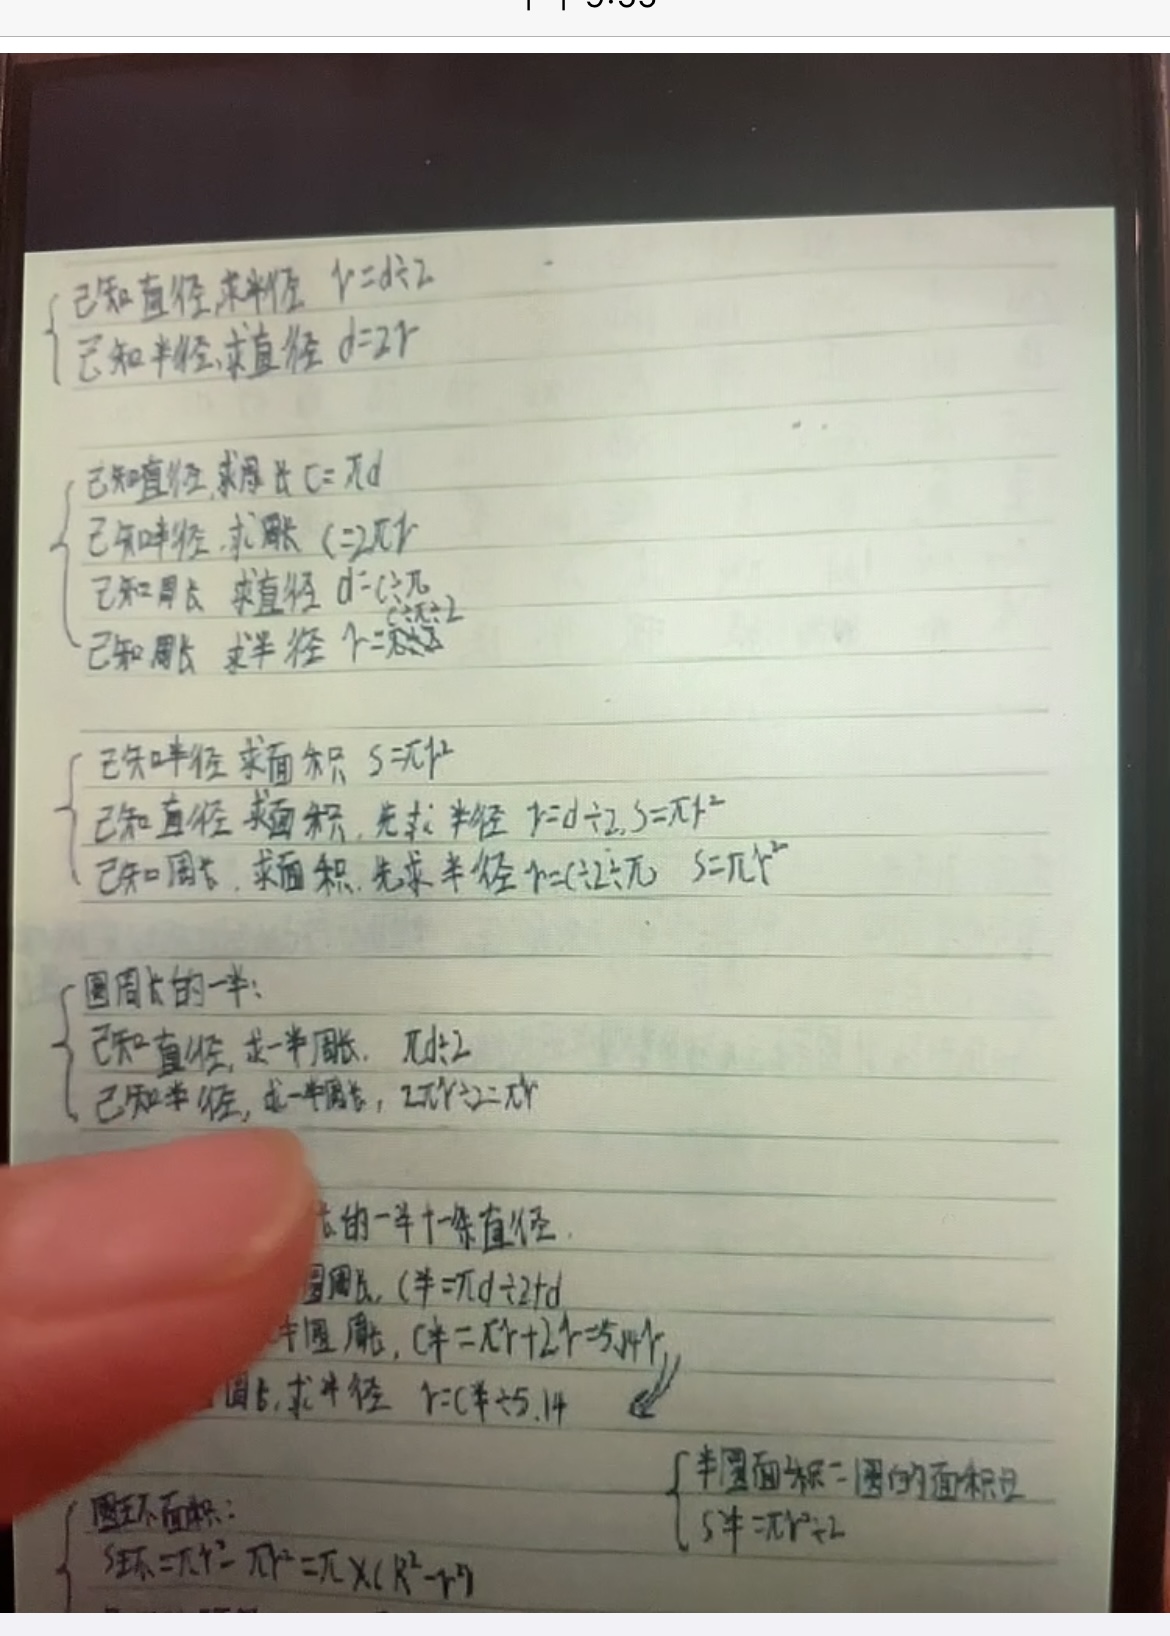 已知直径,求半径 r=d÷2
已知半径,求直径 d=2r
已知直径,求周长 C=πd
已知半径,求周长 C=2πr
已知周长 求直径 d=C÷π
C÷π÷2
已知周长 求半径 r=
已知半径 求面积 S=πr²
已知直径 求面积,先求半径 r=d÷2,S=πr²
已知周长,求面积,先求半径 r=C÷2÷π S=πr²
圆周长的一半:
已知直径,求一半周长, πd÷2
已知半径,求一半周长, 2πr÷2=πr
长的一半+一条直径.
圆周长, C半=πd÷2+d
半圆周长, C半=πr+2r=5.14r
周长,求半径 r=C半÷5.14
半圆面积=圆的面积÷2
S半=πr²÷2
圆环面积:
S环=πr²-πr²=π×(R²-r²)